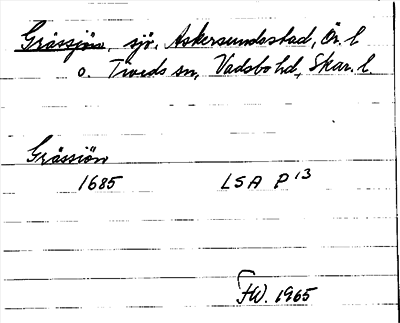 Gråssjön, sjö, Askersundsstad, Ör. l
o. Tiveds sn, Vadsbo hd, Skar. l.
Gråssiön
1685 LSA P 13
FW. 1965